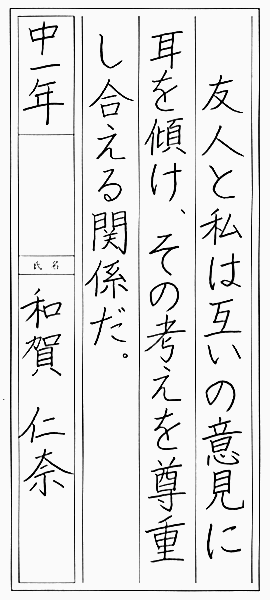 友人と私は互いの意見に
耳を傾け、その考えを尊重
し合える関係だ。
中一年
氏名
和賀 仁奈